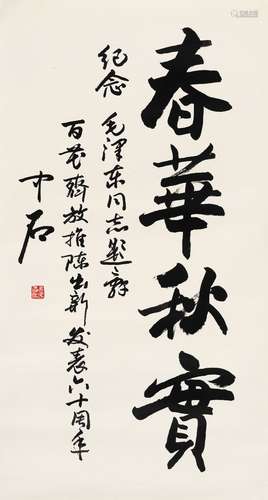 春華秋實
纪念 毛泽东同志题辞
百花齐放推陈出新发表六十周年
中石